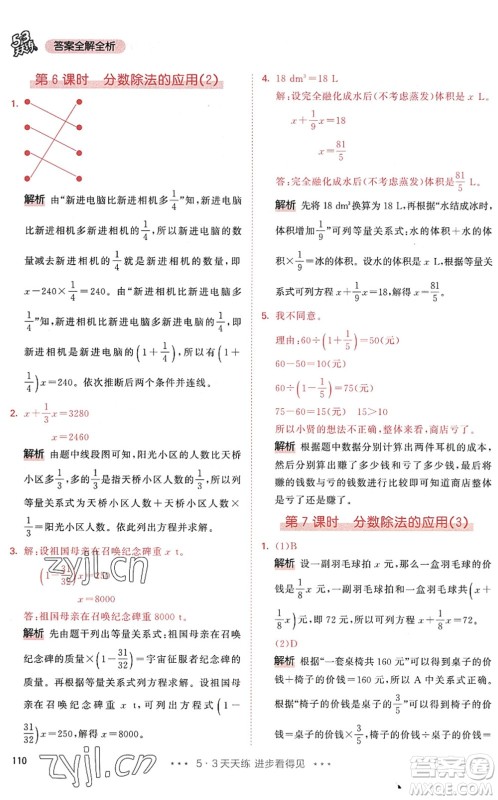 53天天练 答案全解全析
第6课时 分数除法的应用(2)
1.
解析 由“新进电脑比新进相机多1/4”知,新进电脑
数量=新进相机数量×(1+1/4);由“新进电脑
比新进相机少1/4”知,新进相机的数量=新进电脑的
数量减去新进相机就是新进电脑的数量,即
x-240×1/4=240。由“新进电脑比新进相机多
1/4”知,新进相机比新进电脑的(1+1/4),即(1+
1/4)x=240。依次推断后两个可得。
2. x+1/3x=3280
x=2460
解析 由题中线段图可知,阳光小区的人数比天桥
小区多1/3,多的是天桥小区人数的1/3,所以可列
等量关系式为天桥小区人数+天桥小区人数×
1/3=阳光小区人数,据此列方程解答即可。
3. 解:设祖国母亲在召唤纪念碑重x t。
(1-31/32)x=250
x=8000
答:祖国母亲在召唤纪念碑重8000 t。
解析 先由题干列出等量关系式:祖国母亲在召唤
纪念碑的质量×(1-31/32)=宇宙征服者纪念碑
的质量。设祖国母亲在召唤纪念碑重x t,即(1-
31/32)x=250,解得x=8000。
4. 18 dm³=18 L
解:设完全融化成水后(不考虑蒸发)体积是x L。
x+1/9x=18
x=81/5
答:完全融化成水后(不考虑蒸发)体积是81/5 L。
解析 先将18 dm³换算为18 L,再根据“水结成冰时,
体积增加1/9”可列等量关系式:水的体积+水的体
积×1/9=冰的体积。设水的体积为x L,根据等量关
系式可列方程x+1/9x=18,解得x=81/5。
5. 我不同意。
理由:60÷(1+1/5)=50(元)
60-50=10(元)
60÷(1-1/5)=75(元)
75-60=15(元) 15>10
所以小贤的想法不正确,商店亏了。
解析 根据题中数据分别计算出两件耳机的成本,
再计算出赚了多少钱和亏了多少钱,最后将
赚的钱数与亏的钱数进行比较,即可知道是赚
了还是亏了。
第7课时 分数除法的应用(3)
1. (1)B
解析 设一副羽毛球拍x元,那么一盒羽毛球的价
钱是1/8x元,一副羽毛球拍和一盒羽毛球共(x+
1/8x)元,所以选B。
(2)D
解析 根据“一套桌椅共160元”可以得出桌子的价
钱+椅子的价钱=160元,所以A中数量关系正确。
根据“椅子的价钱是桌子的3/5”可以得出椅子的价
钱=桌子的价钱×3/5,所以桌子的价钱+桌子的价
110
5·3天天练 进步看得见